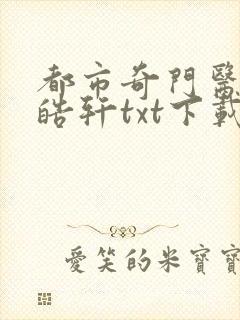 都市奇門醫
皓轩txt下載
愛笑的米寶寶